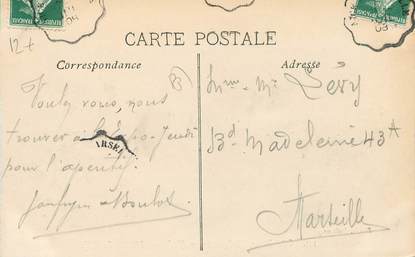 12+
CARTE POSTALE
Correspondance
Adresse
Voulez vous, nous
trouver à l'Expo-Jeudi
pour l'aperitif.
Mme Mr Lévy
Bd Madeleine 43 A
Marseille